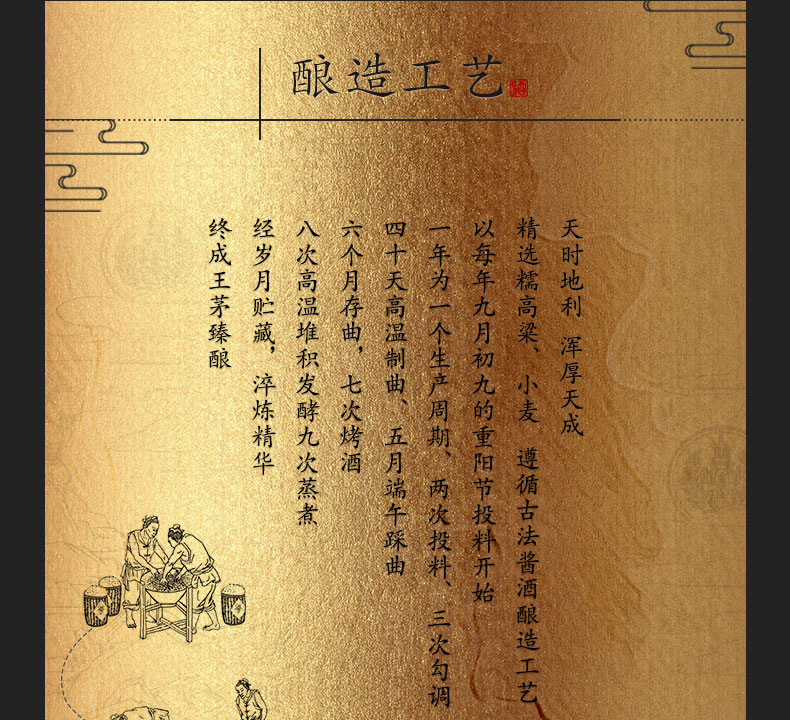 酿造工艺
天时地利 浑厚天成
精选糯高粱、小麦 遵循古法酱酒酿造工艺
以每年九月初九的重阳节投料开始
一年为一个生产周期、两次投料、三次勾调
四十天高温制曲、五月端午踩曲
六个月存曲，七次烤酒
八次高温堆积发酵九次蒸煮
经岁月贮藏，淬炼精华
终成王茅臻酿